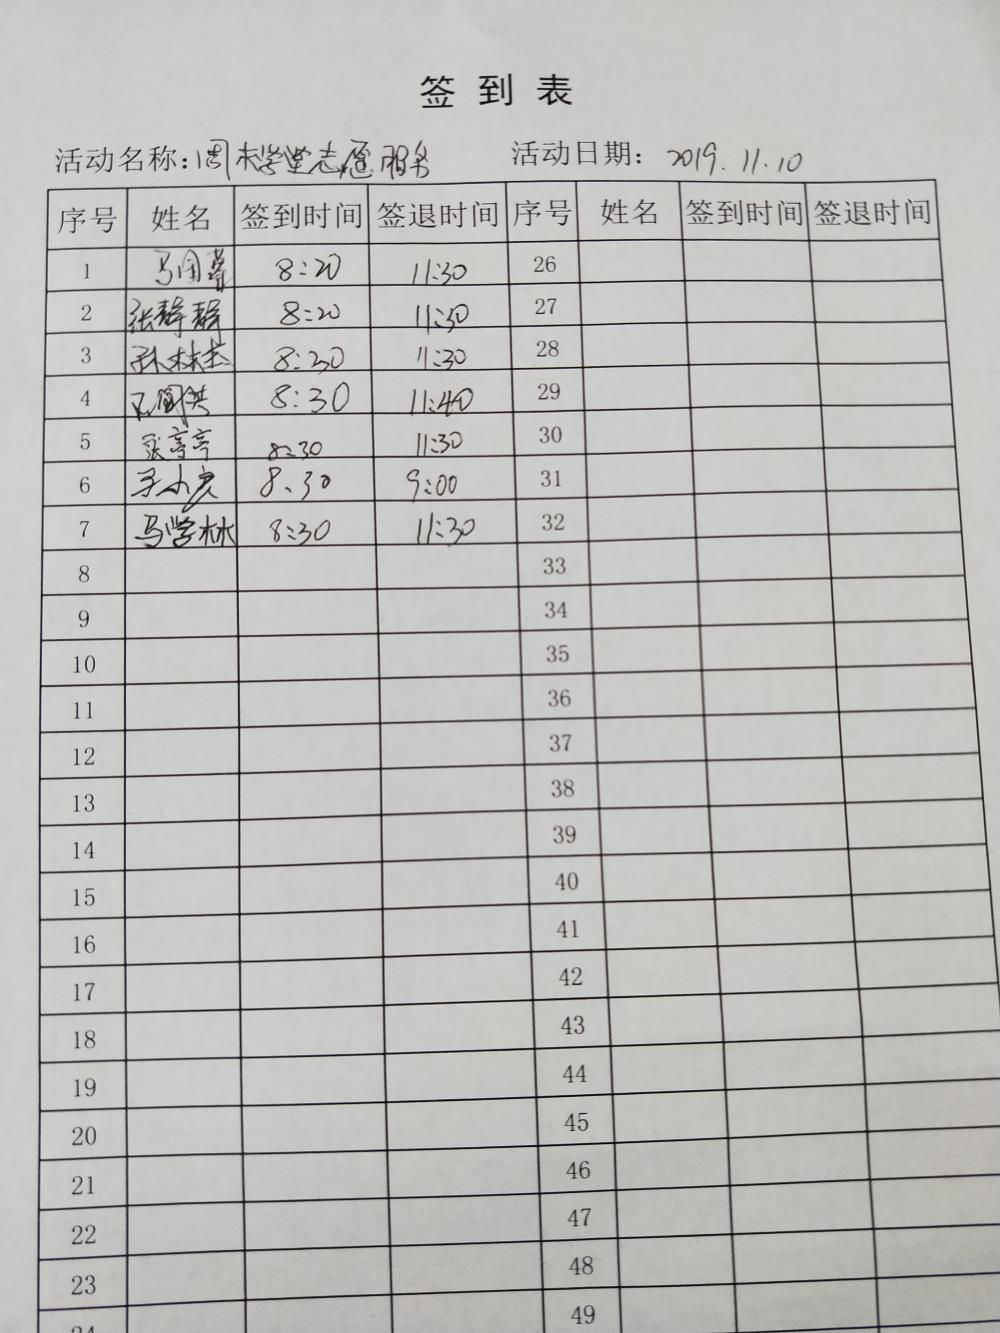 签到表
活动名称：周末学堂志愿服务 活动日期：2019.11.10
序号 姓名 签到时间 签退时间 序号 姓名 签到时间 签退时间
1 8:20 11:30 26
2 张静静 8:20 11:30 27
3 孙林杰 8:30 11:30 28
4 8:30 11:40 29
5 张亭亭 8:30 11:30 30
6 8:30 9:00 31
7 马学林 8:30 11:30 32
8 33
9 34
10 35
11 36
12 37
13 38
14 39
15 40
16 41
17 42
18 43
19 44
20 45
21 46
22 47
23 48
24 49